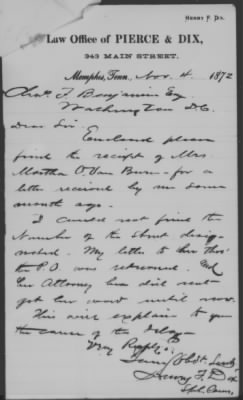 HENRY F. DIX.
Law Office of PIERCE & DIX,
343 MAIN STREET.
Memphis, Tenn., Nov. 4 1872
Chas. F. Benjamin Esq
Washington D.C.
Dear Sir
Enclosed please
find the receipt of Mrs
Martha O Van Buren for a
letter received by me some
month ago.
I could not find the
Number of the Street desig-
nated. My letter to her thro'
the P.O. was returned. and
her Attorney here did not
get her word until now.
This will explain to you
the cause of the delay
Very Respfly.
Your Obdt Servt
Henry F. Dix
Spl. Com.